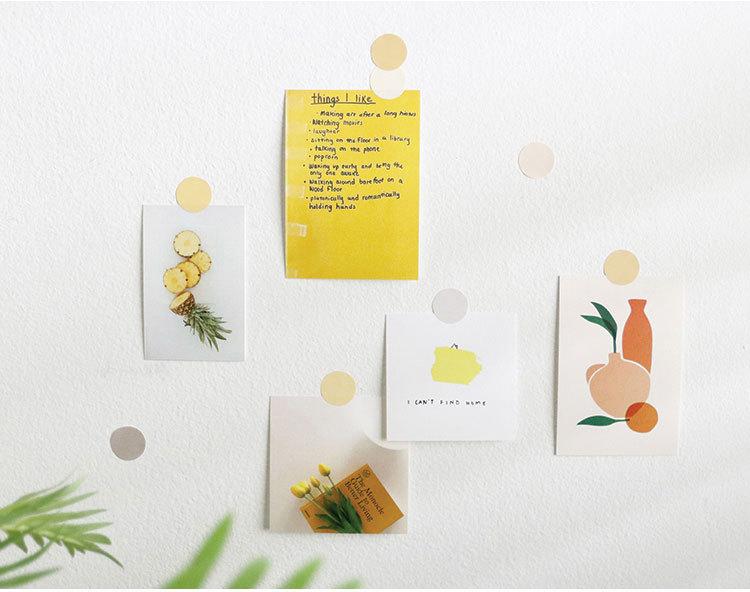 things I like
· Making art after a long hiatus
· Watching movies
· laughter
· sitting on the floor in a library
· talking on the phone
· popcorn
· waking up early and being the
only one awake
· Walking around barefoot on a
Wood Floor
· platonically and romantically
holding hands
I CAN'T FIND HOME
The Monocle
Guide to
Better Living